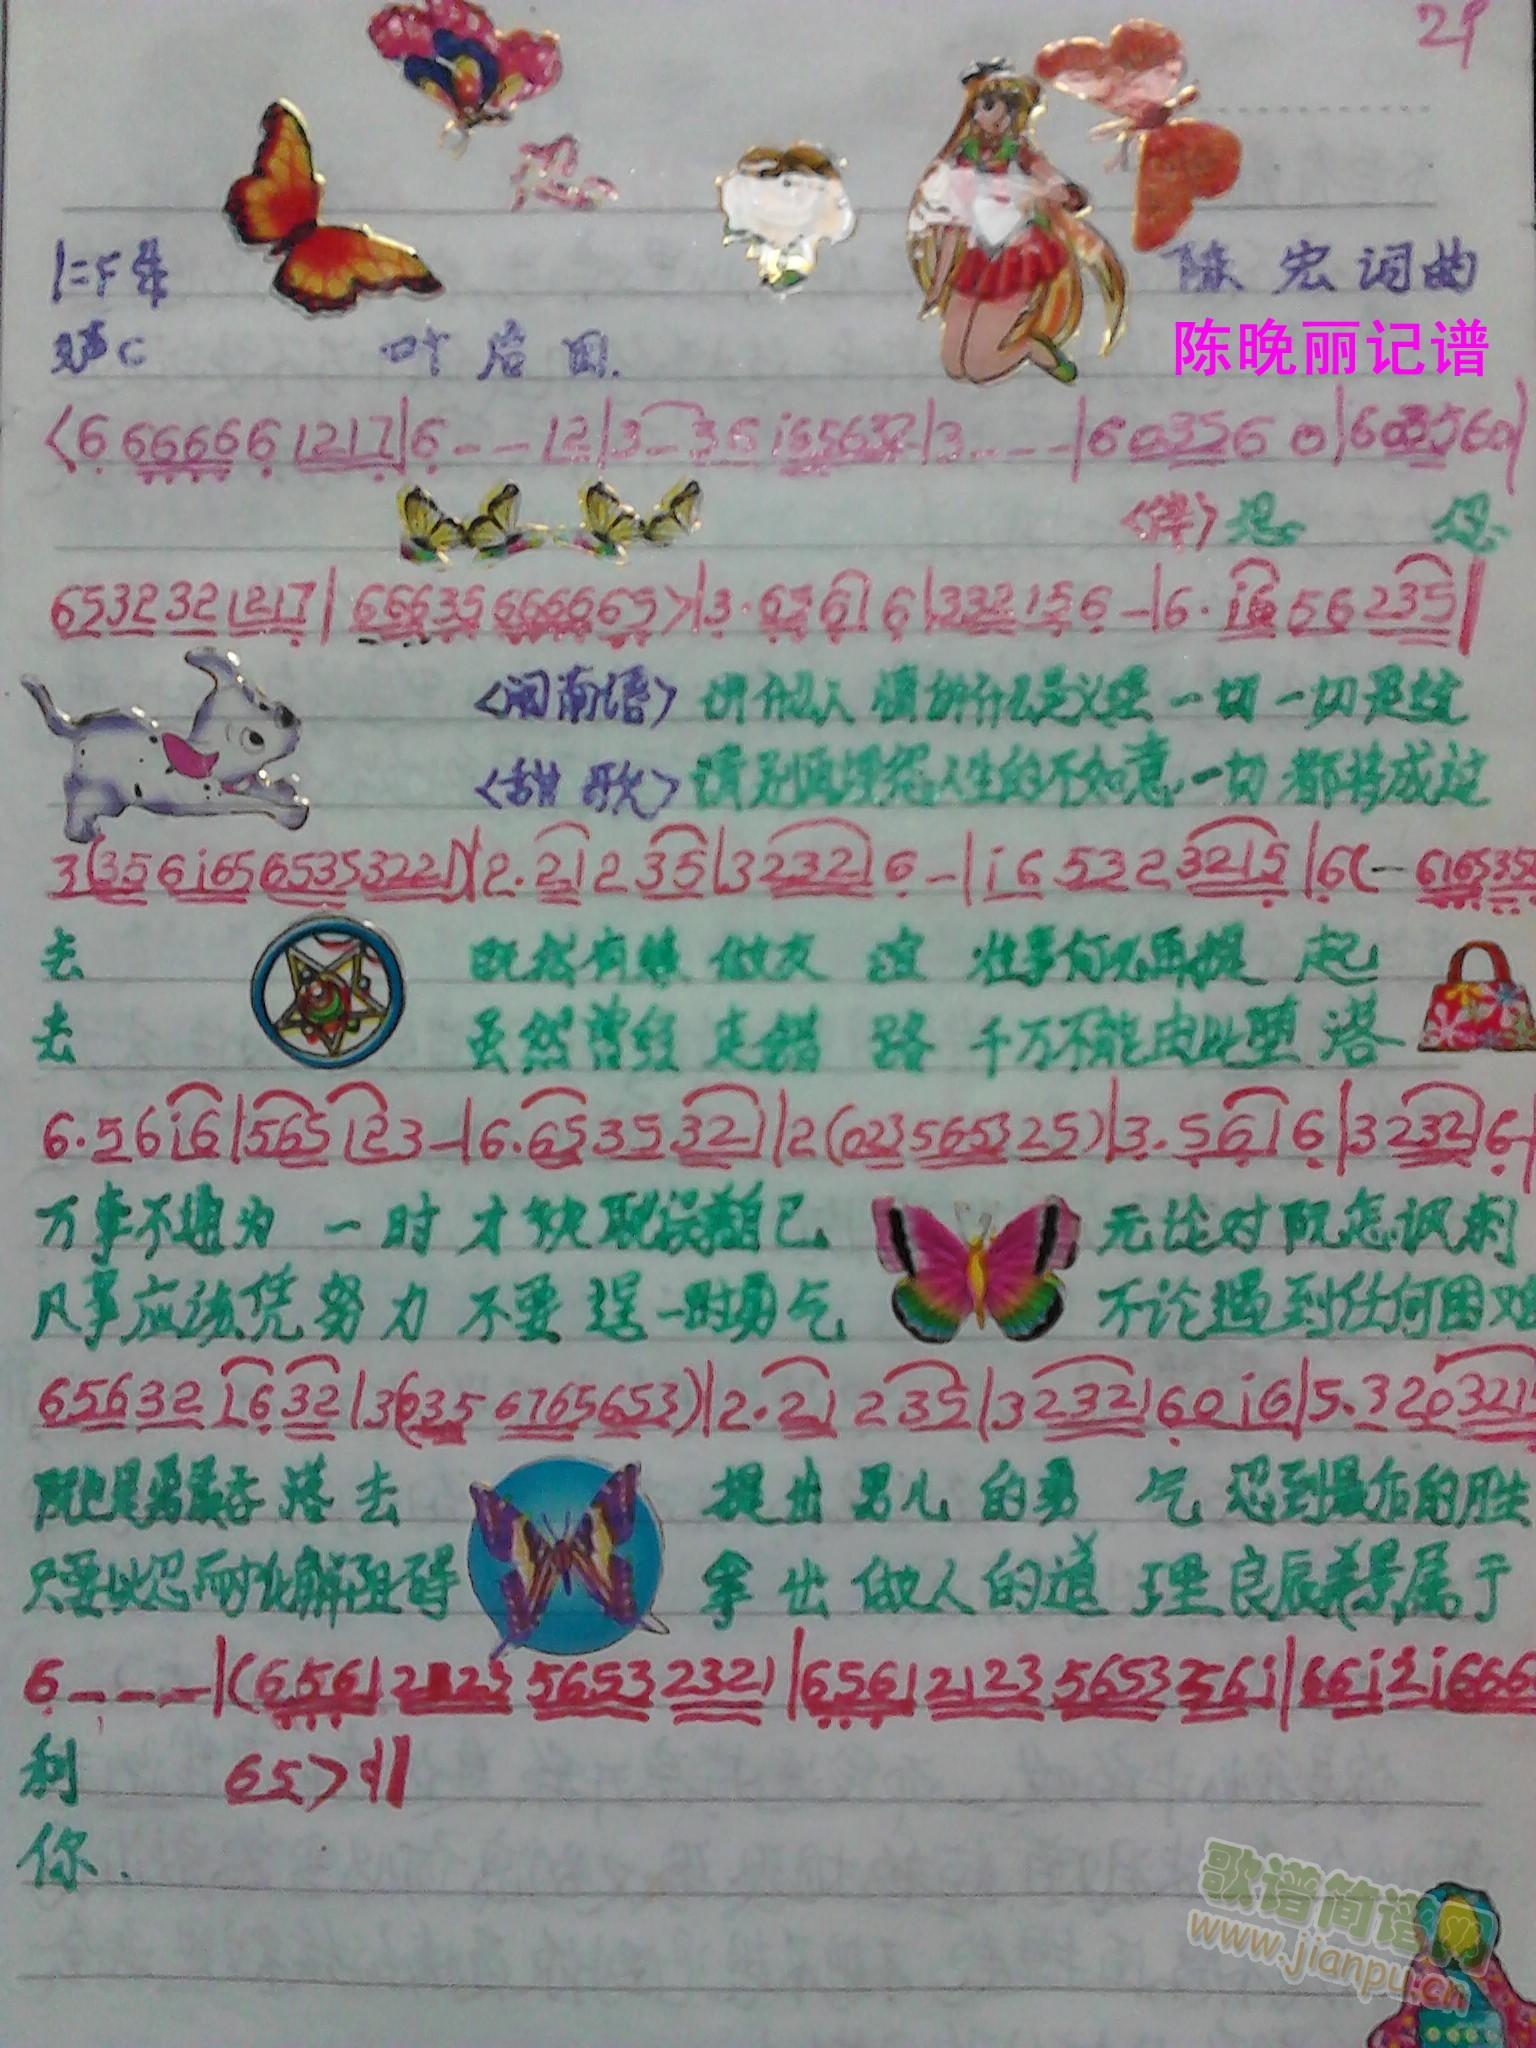 29
忍
1=F 4/4
陈宏词曲
叶启田.
陈晚丽记谱
<6 66666 1217|6--12|3-36 i65637|3---|603560|603560|
<伴>忍 忍
65323217|666356666665>|3.6561 6|332156-|6.i656235|
<闽南语> 讲什么人情讲什么是义理 一切 一切是放
<甜歌> 请别再埋怨人生的不如意 一切 都将成过
3(356i656535322)|2.21235|32321 6-|i6532 3215|6(-
去 既然有缘 做友谊 往事何必再提起
去 虽然曾经走错路 千万不能由此堕落
6.56i6|565123-|6.653532|2(02356532 5)|3.5616|32326-
万事不通为一时 才来耽误着自己 无论对阮怎讽刺
凡事应该凭努力 不要逞一时勇气 不论遇到任何困难
6563216 32|3(035 6765653)|2.21235|32321 60i6|5.320321
阮也是勇敢吞落去 提出男儿的勇气 忍到最后的胜
只要以忍耐化解阻碍 拿出做人的道理 良辰美景属于
6---|(6561 2123 5653 2321|6561 2123 5653 256i|66i2i666
利 65>:||
你.
歌谱简谱网
www.jianpu.cn